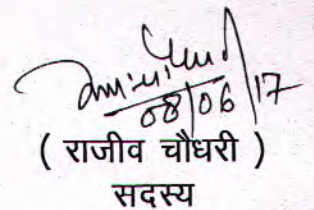 08/06/17
( राजीव चौधरी )
सदस्य